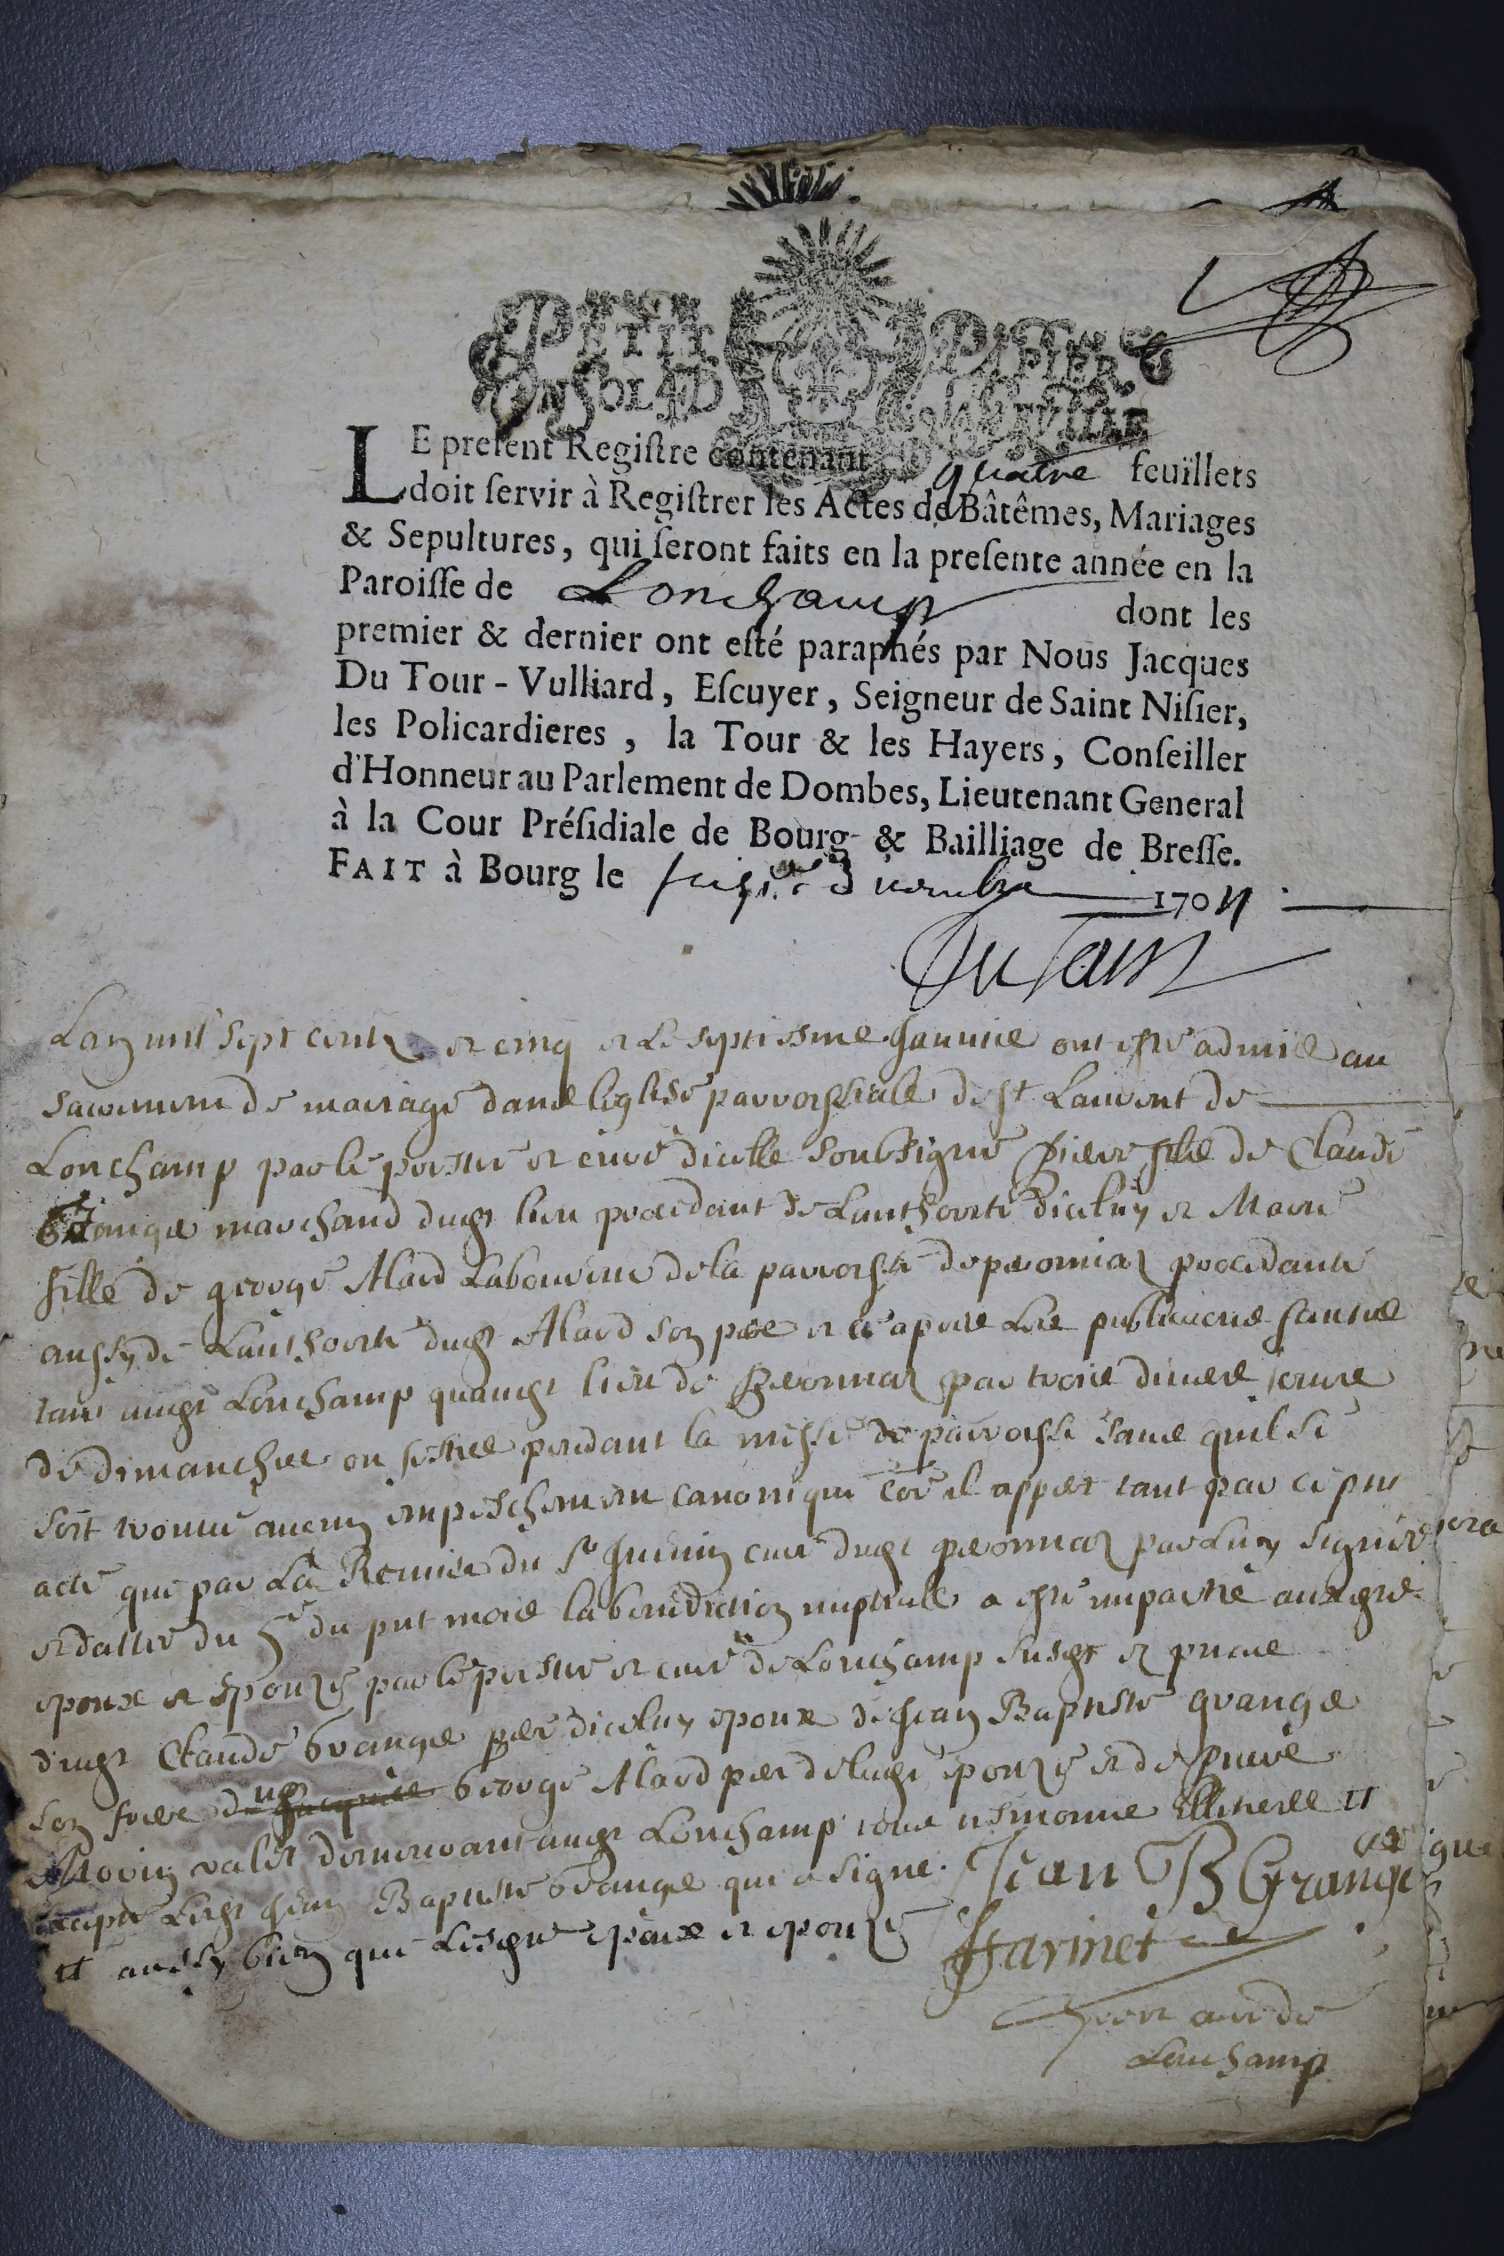 PETIT PAPIER
UN SOL LA FEUILLE
LE preſent Regiſtre contenant quatre feuïllets
doit ſervir à Regiſtrer les Actes de Bâtêmes, Mariages
& Sepultures, qui ſeront faits en la preſente année en la
Paroiſſe de Lonchamp dont les
premier & dernier ont eſté paraphés par Nous Jacques
Du Tour-Vulliard, Eſcuyer, Seigneur de Saint Niſier,
les Policardieres, la Tour & les Hayers, Conſeiller
d'Honneur au Parlement de Dombes, Lieutenant General
à la Cour Préſidiale de Bourg & Bailliage de Breſſe.
FAIT à Bourg le 170
Lan mil sept cents et cinq et le septiesme Janvier ont esté admis au
sacrement de mariage dans leglise parroissiale de st Laurent de
Lonchamp par le prestre et curé dicelle soubsigné Pierre fils de Claude
Grange marchand dudt lieu procedant de Lauthorité diceluy et Marie
fille de george Alard Laboureur de la parroisse de peronnaz procedante
aussy de Lauthorité dudt Alard son pere et ce apres Les publications faictes
tant audt Lonchamp quaudt lieu de peronnaz par trois divers jours
de dimanches ou festes pendant la messe de parroisse sans quil se
soit trouvé aucun empeschement canonique coe il appert tant par ce pnt
acte que par La Remise du Sr curé dudt peronnaz par Luy signée
et dattée du 5e du pnt mois la benediction nuptialle a esté impartie auxdts
epoux et epouze par le prestre et curé de Lonchamp susdt en pnce
dudt Claude Grange pere diceluy epoux de Jean Baptiste grange
son frere dudt George Alard pere de ladte epouze et de pierre
valet demeurant audt Lonchamp tous tesmoins Illiteres
excepté Ledt Jean Baptiste Grange qui a signé. Jean B Grange
aussy bien que Lesdts epoux et epouze
Harinet
curé de
Lonchamp